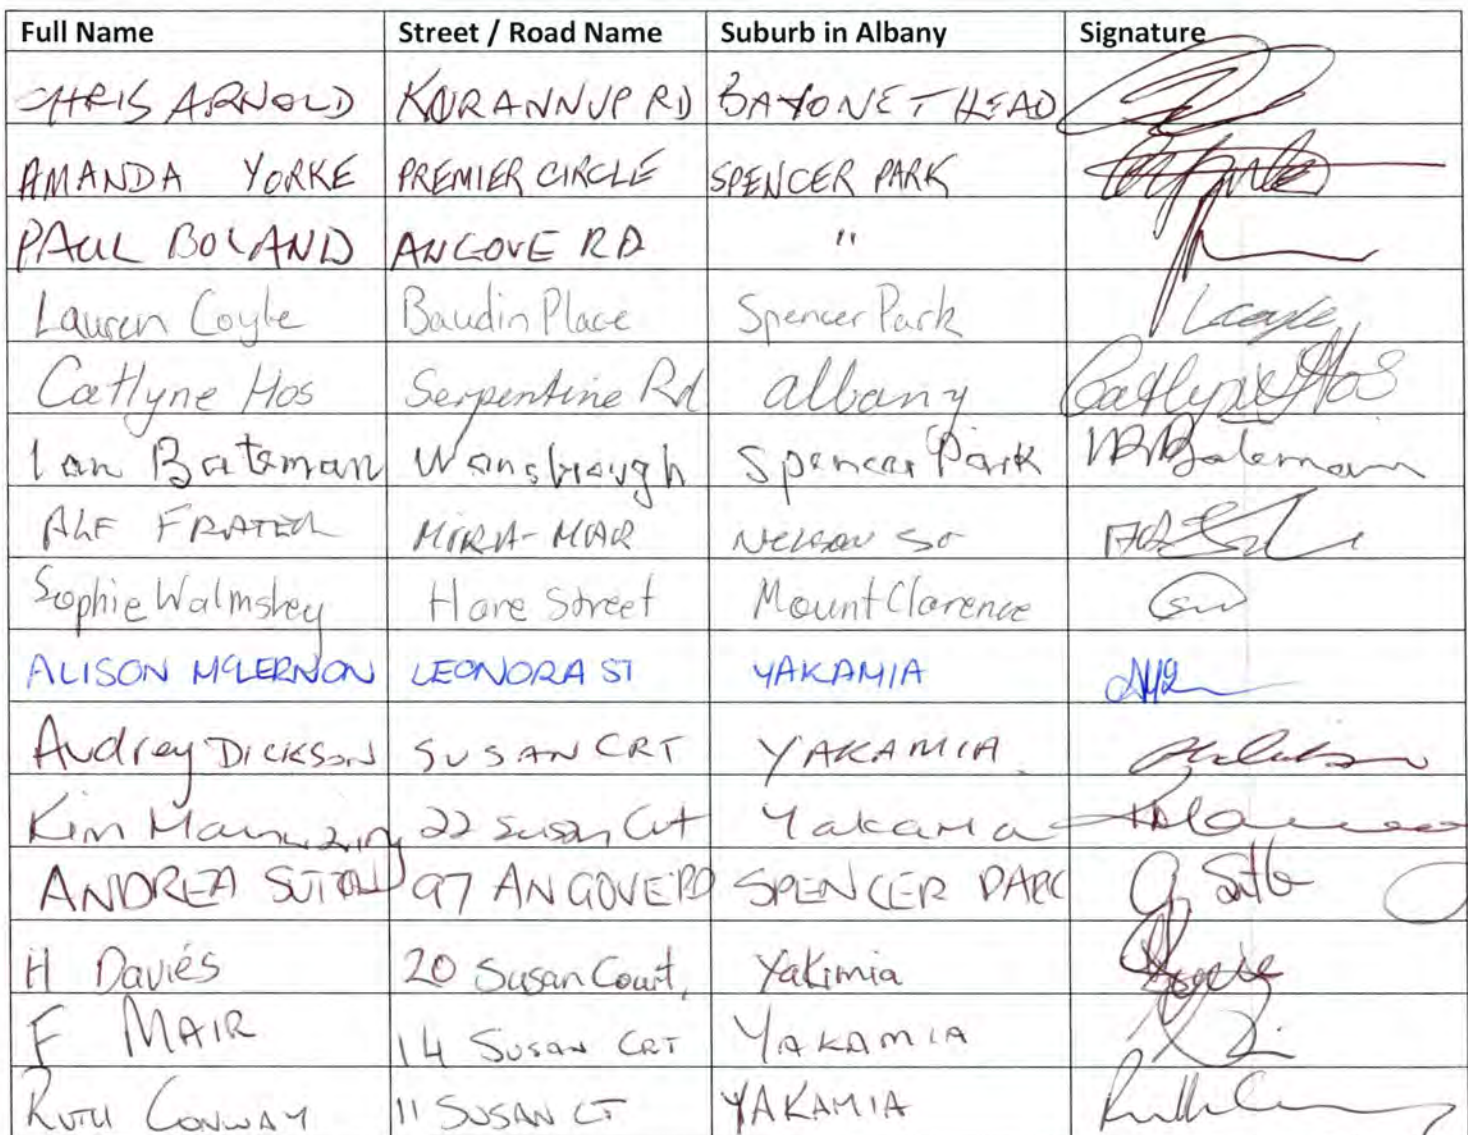 Full Name Street / Road Name Suburb in Albany Signature
CHRIS ARNOLD KURANNUP RD BAYONET HEAD
AMANDA YORKE PREMIER CIRCLE SPENCER PARK
PAUL BOLAND ANGOVE RD "
Lauren Coyle Baudin Place Spencer Park LCoyle
Catlyne Hos Serpentine Rd albany Catlyne Hos
Ian Bateman Wansbrough Spencer Park Bateman
ALF FRATER MIRA-MAR NELSON ST
Sophie Walmsley Hare Street Mount Clarence SW
ALISON McLERNON LEONORA ST YAKAMIA
Audrey DICKSON SUSAN CRT YAKAMIA
Kim 22 Susan Crt Yakama
ANDREA SUTTON 97 ANGOVE RD SPENCER PARK
H Davies 20 Susan Court, Yakimia
F MAIR 14 SUSAN CRT YAKAMIA
RUTH CONWAY 11 SUSAN CT YAKAMIA